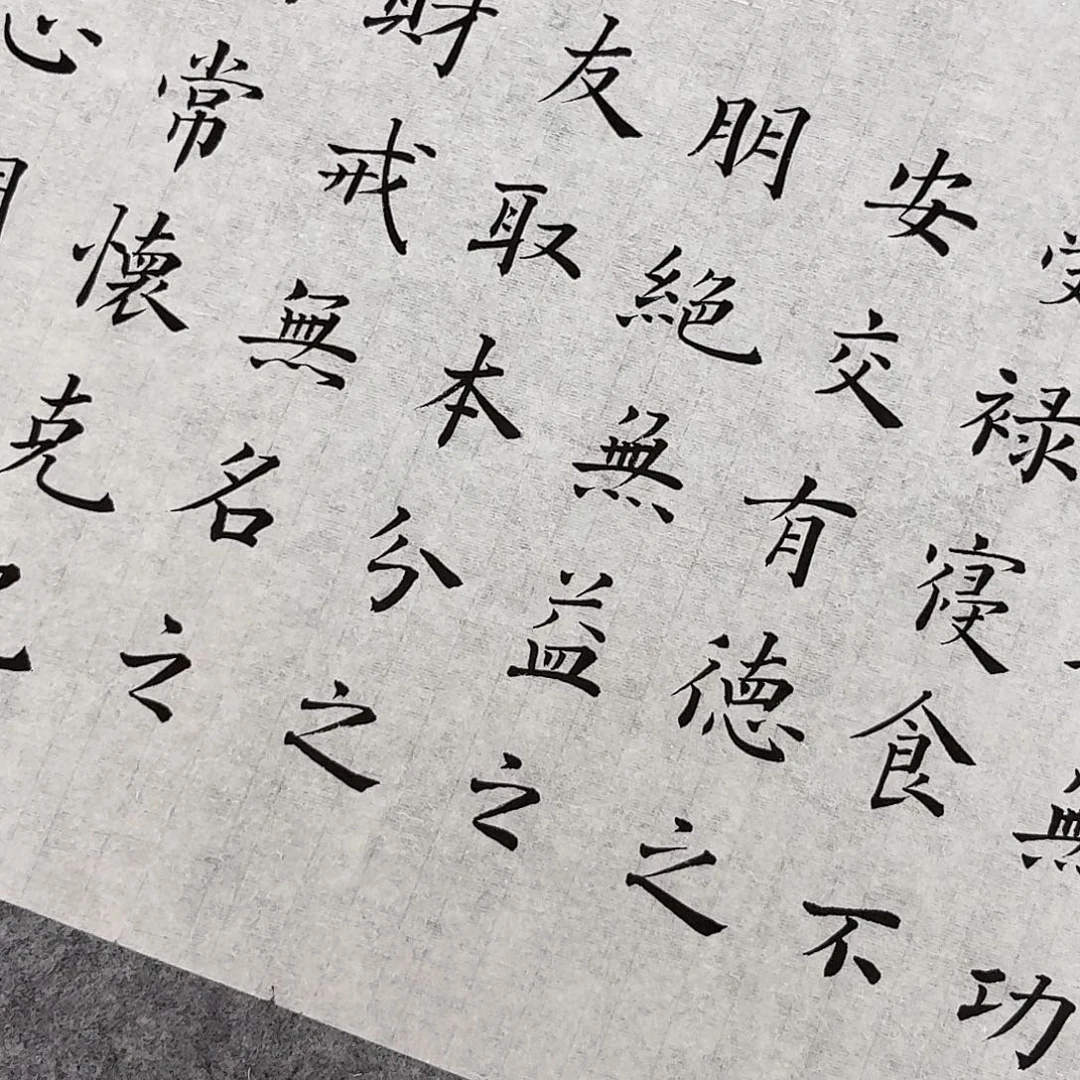 無功
受禄寝食不
安交有德之
朋絕無益之
友取本分之
財戒無名之
常懷克己
心